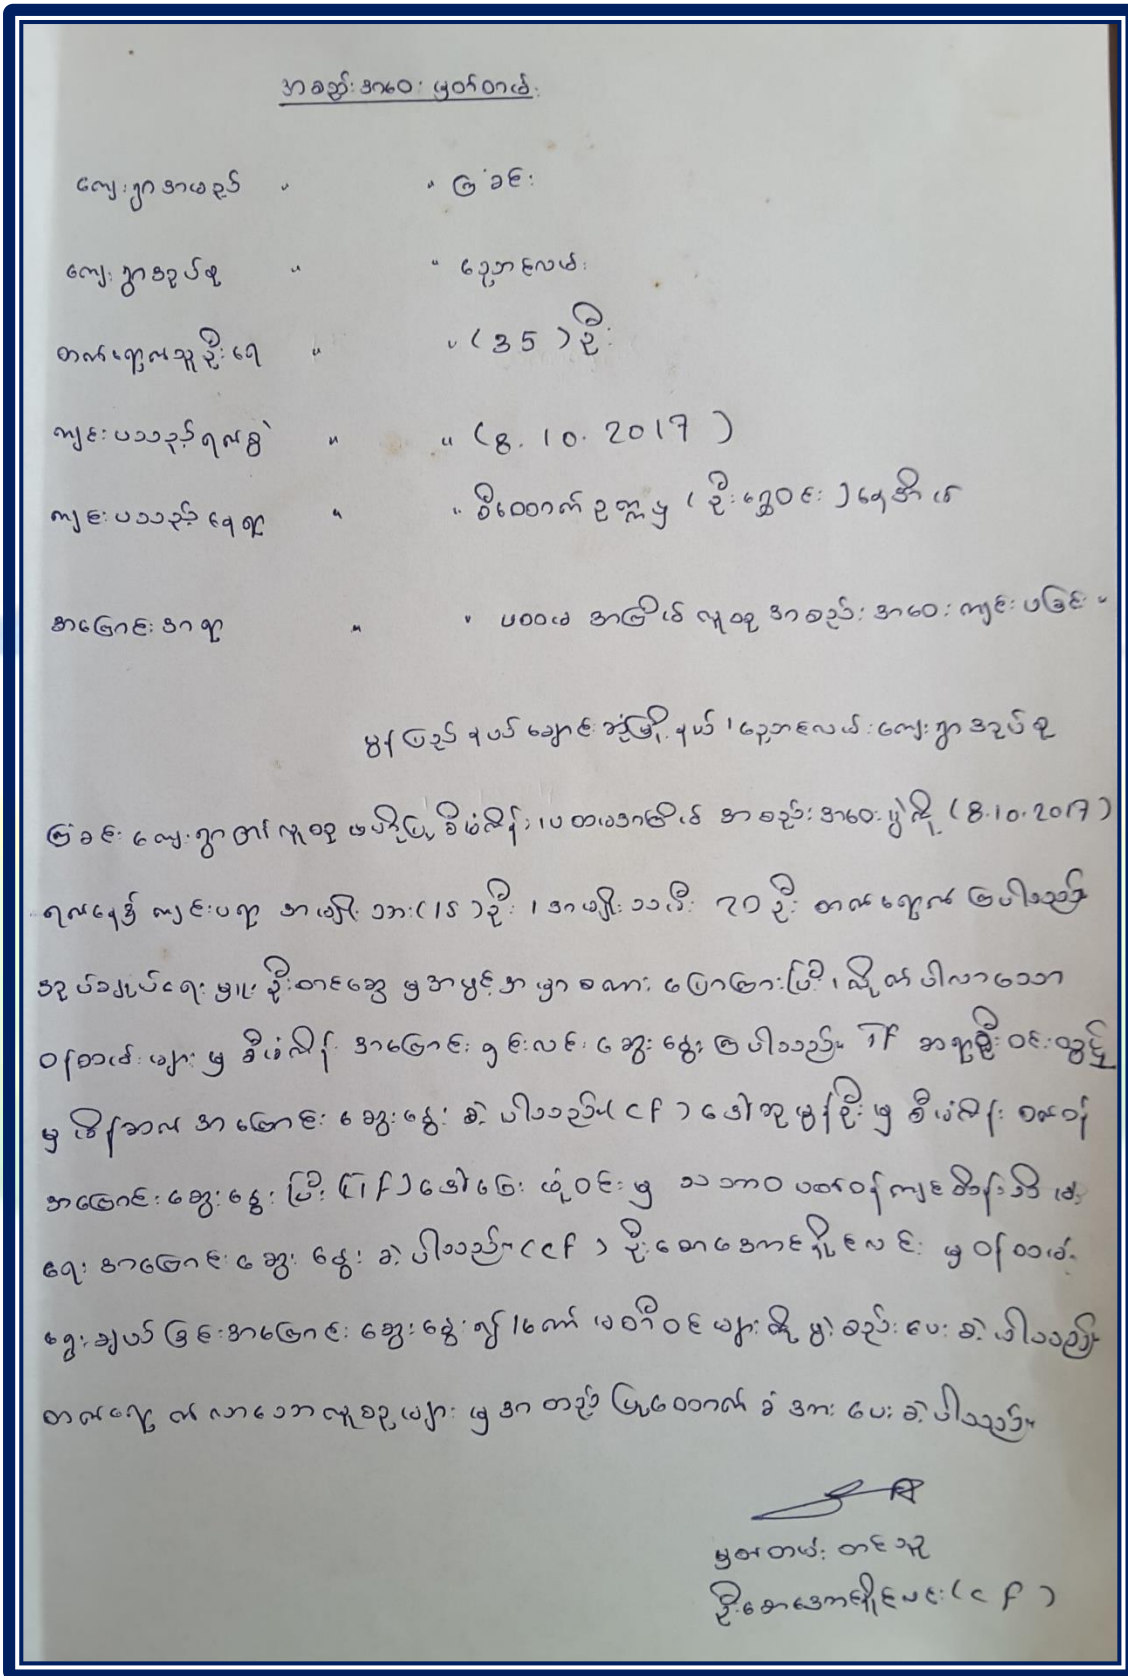 အစည်းအဝေး မှတ်တမ်း
ကျေးရွာအမည် " " ခြံခင်း
ကျေးရွာအုပ်စု "
တက်ရောက်သူဦးရေ " " (35) ဦး
ကျင်းပသည့်ရက်စွဲ " " (8.10.2017)
ကျင်းပသည့်နေရာ " " စီထောက်ဥက္ကဌ (ဦးရွှေဝင်း) နေအိမ်
အကြောင်းအရာ " " ပထမ အကြိမ် လူထု အစည်းအဝေး ကျင်းပခြင်း "
မွန်ပြည်နယ် ချောင်းဆုံမြို့နယ် ၊ ကျေးရွာအုပ်စု
ခြံခင်း ကျေးရွာ ၏ လူထု ဗဟိုပြု စီမံကိန်း ၊ ပထမအကြိမ် အစည်းအဝေးပွဲကို (8.10.2017)
ရက်နေ့၌ ကျင်းပရာ အမျိုးသား (15) ဦး ၊ အမျိုးသမီး 20 ဦး တက်ရောက်ကြပါသည်။
အုပ်ချုပ်ရေးမှူး ဦးတင်ဆွေ မှ အဖွင့်အမှာစကား ပြောကြားပြီး ၊ လိုက်ပါလာသော
ဝန်ထမ်းများမှ စီမံကိန်း အကြောင်း ရှင်းလင်း ဆွေးနွေးကြပါသည်။ TF ဆရာဦးဝင်း
မှ အကြောင်း ဆွေးနွေးခဲ့ပါသည်။ (CF) ဒေါ်သူမွန်ဦးမှ စီမံကိန်း စက်ဝန်
အကြောင်း ဆွေးနွေးပြီး (TF) ဒေါ်ခြေ မှ သဘာဝပတ်ဝန်ကျင်ထိန်းသိမ်း
ရေး အကြောင်း ဆွေးနွေးခဲ့ပါသည်။ (CF) ဦးစောအောင်ရှိုင်လင်း မှ ဝန်ထမ်း
ရွေးချယ်ခြင်းအကြောင်း ဆွေးနွေး၍ ၊ ကော်မတီဝင်များကို ဖွဲ့စည်းပေးခဲ့ပါသည်။
တက်ရောက်လာသောလူထုများ မှ အတည်ပြုထောက်ခံအားပေးခဲ့ပါသည်။
မှတ်တမ်းတင်သူ
ဦးစောအောင်ရှိုင်လင်း (CF)